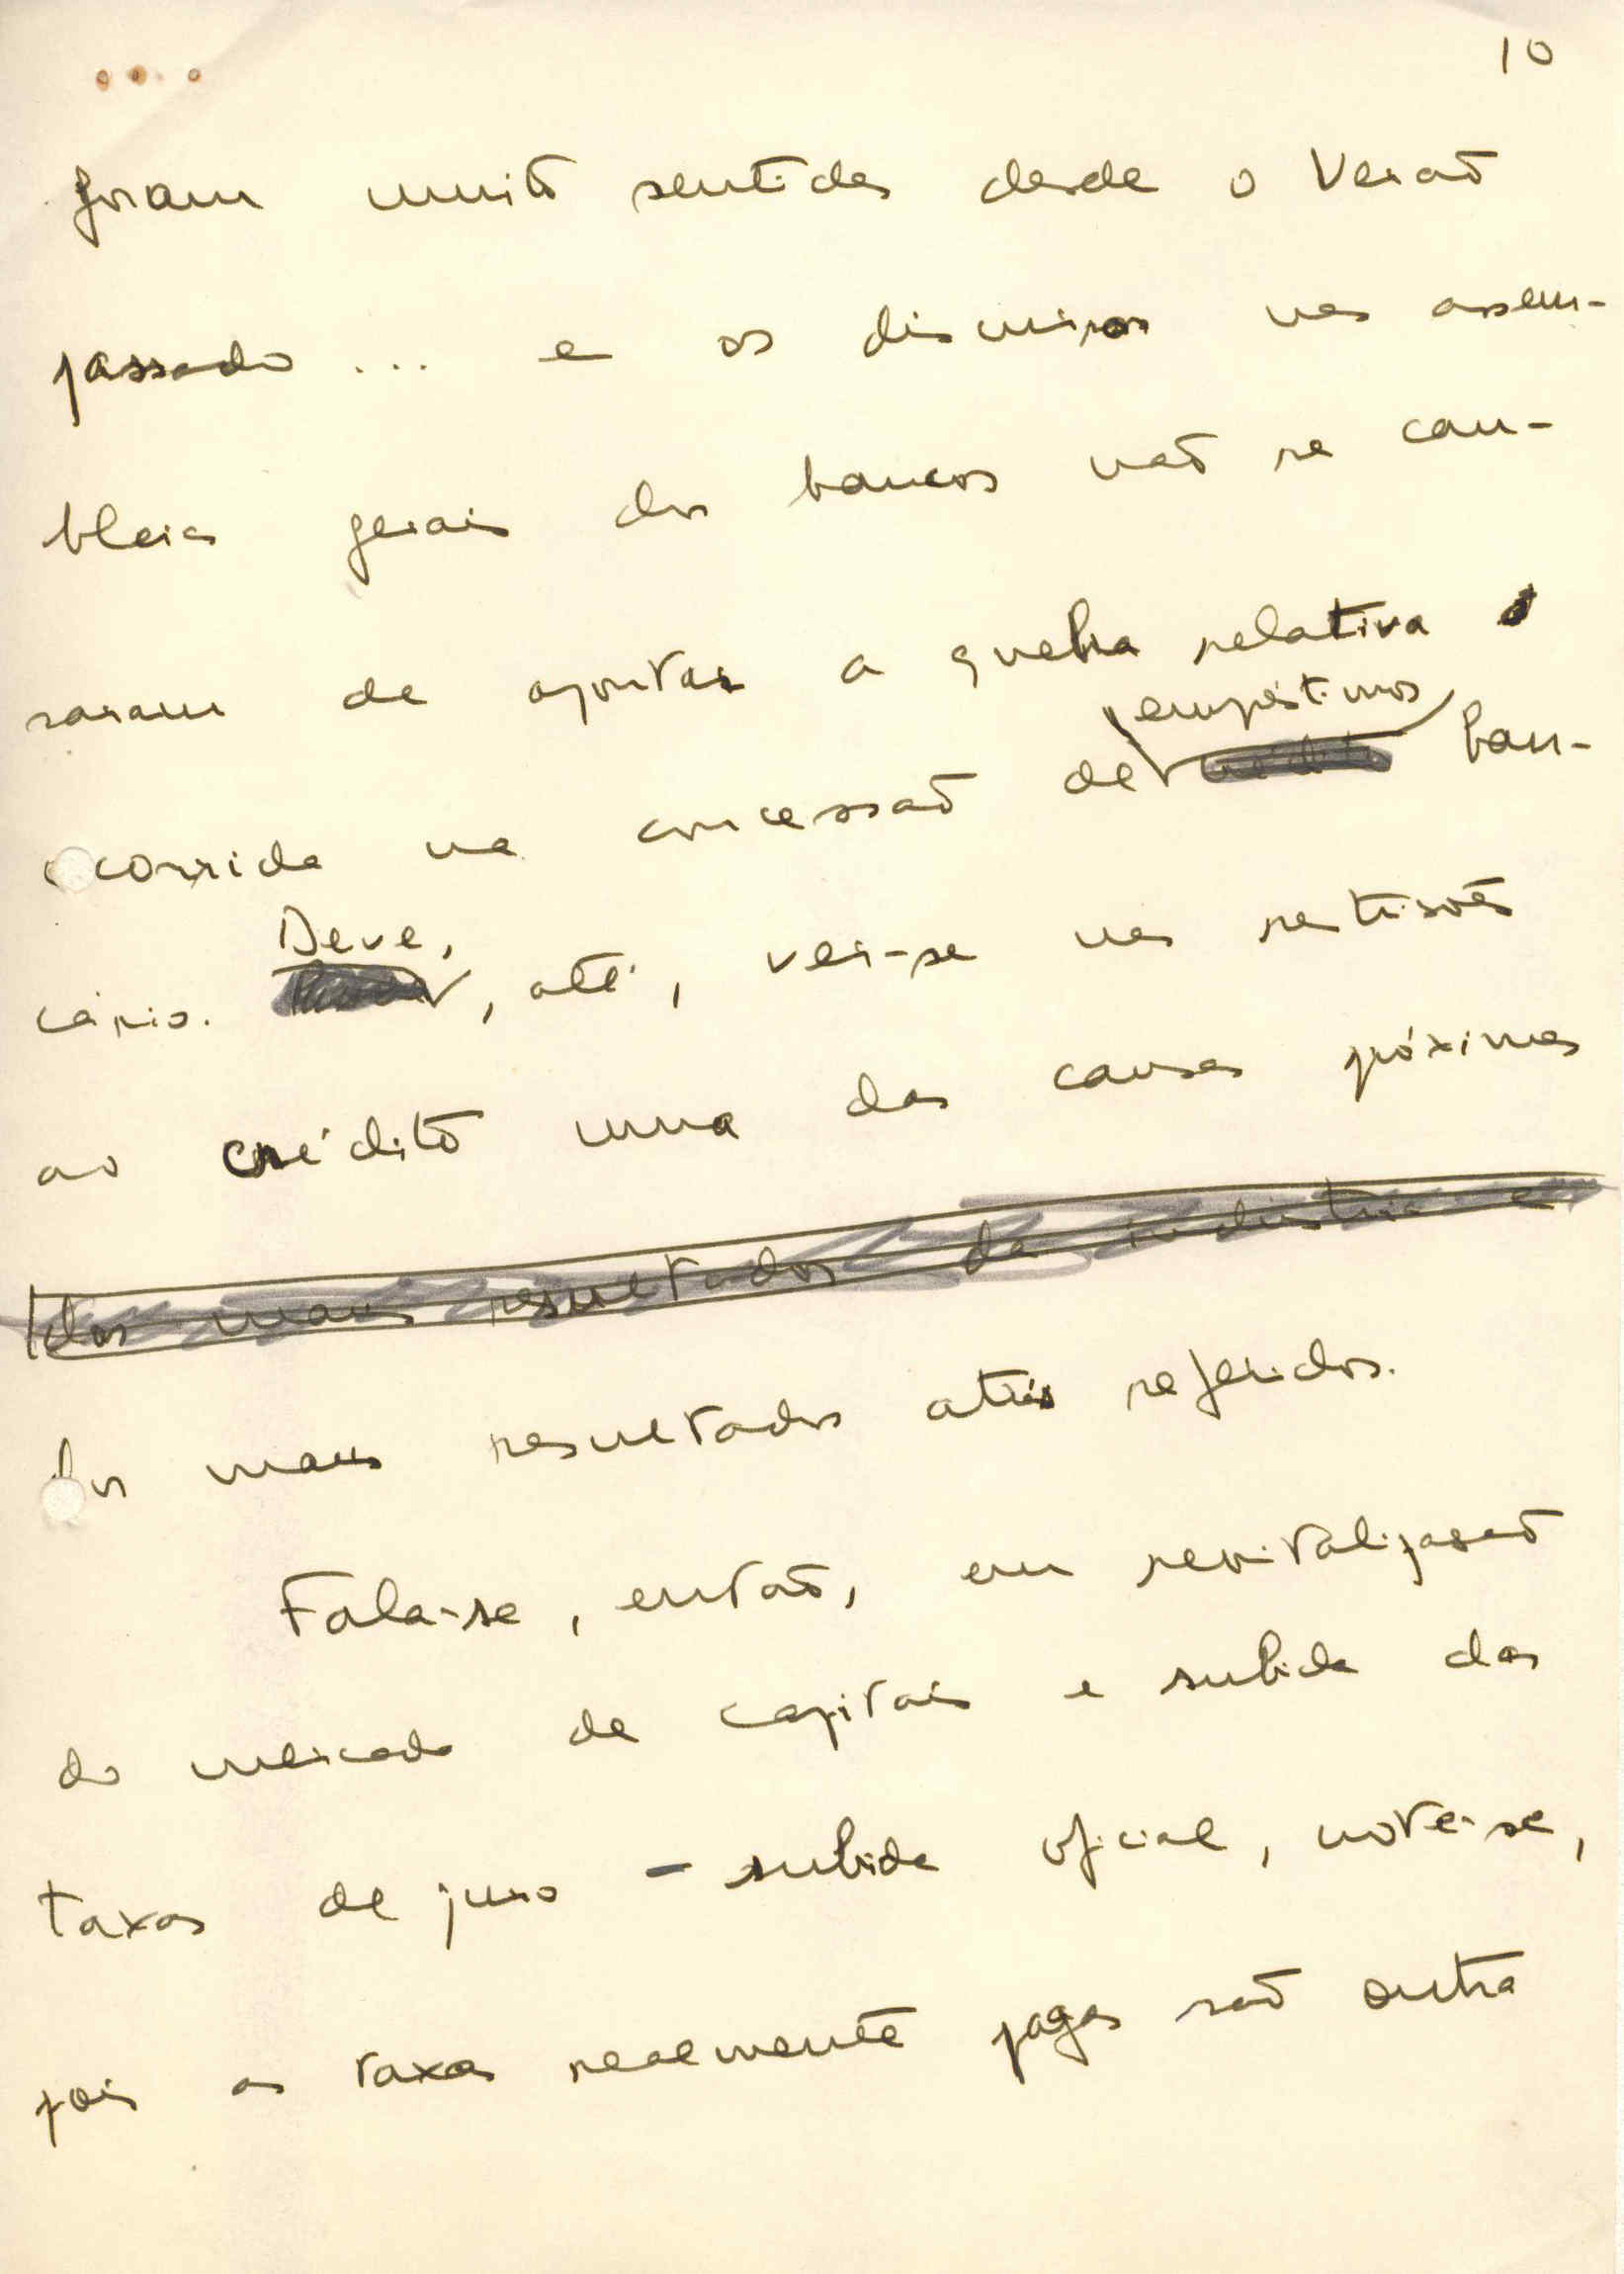 10
foram muito sentidas desde o Verão
passado ... e os discursos nas assem-
bleias gerais dos bancos não se can-
saram de apontar a quebra relativa
empréstimos
ocorrida na concessão de crédito ban-
Deve,
cário. , até, ver-se nas restrições
ao crédito uma das causas próximas
dos maus resultados da indústria e
dos maus resultados atrás referidos.
Fala-se, então, em revitalização
do mercado de capitais e subida das
taxas de juro - subida oficial, note-se,
pois as taxas realmente pagas são outra